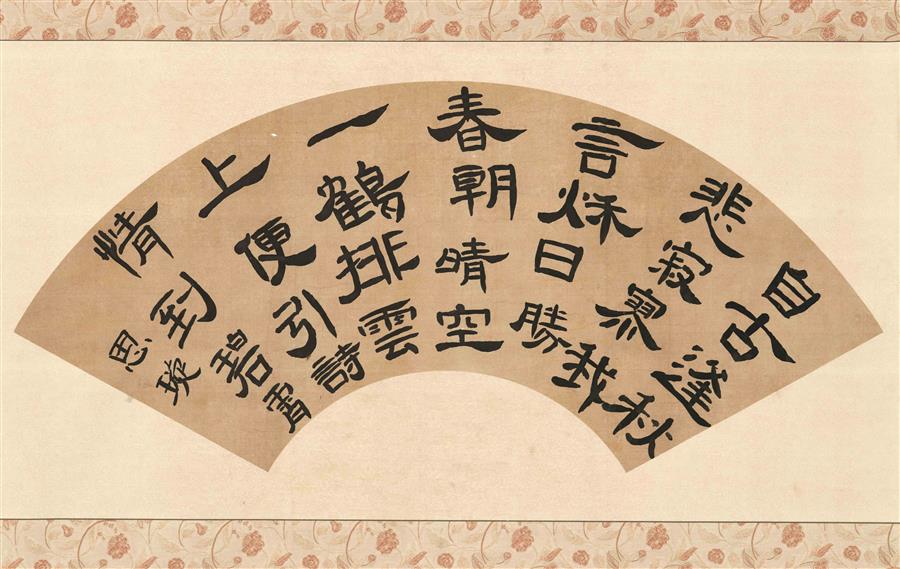 自古逢秋
悲寂寥我
言秌日勝
春朝晴空
一鶴排雲
上便引詩
情到碧霄
思